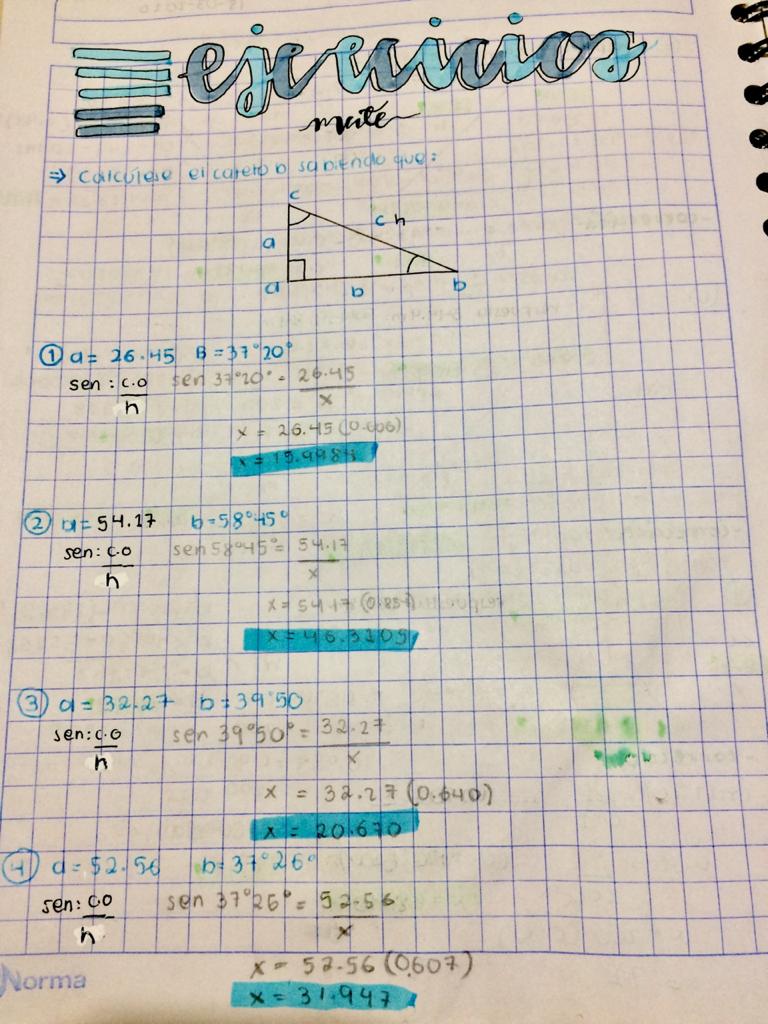 ejercicios
mate
⇒ Calcúlese el cateto b sabiendo que:
c
c h
a
a b b
① a= 26.45 B=37°20°
sen: c.o/h sen 37°20° = 26.45/x
x = 26.45(0.606)
x = 15.9984
② a=54.17 b=58°45°
sen: c.o/h sen 58°45°= 54.17/x
x=54.17(0.854)
x=46.3105
③ a= 32.27 b=39°50
sen: c.o/h sen 39°50°= 32.27/x
x = 32.27 (0.640)
x = 20.670
④ a=52.56 b=37°26°
sen: co/h sen 37°26°= 52.56/x
x= 52.56 (0.607)
x= 31.947
Norma